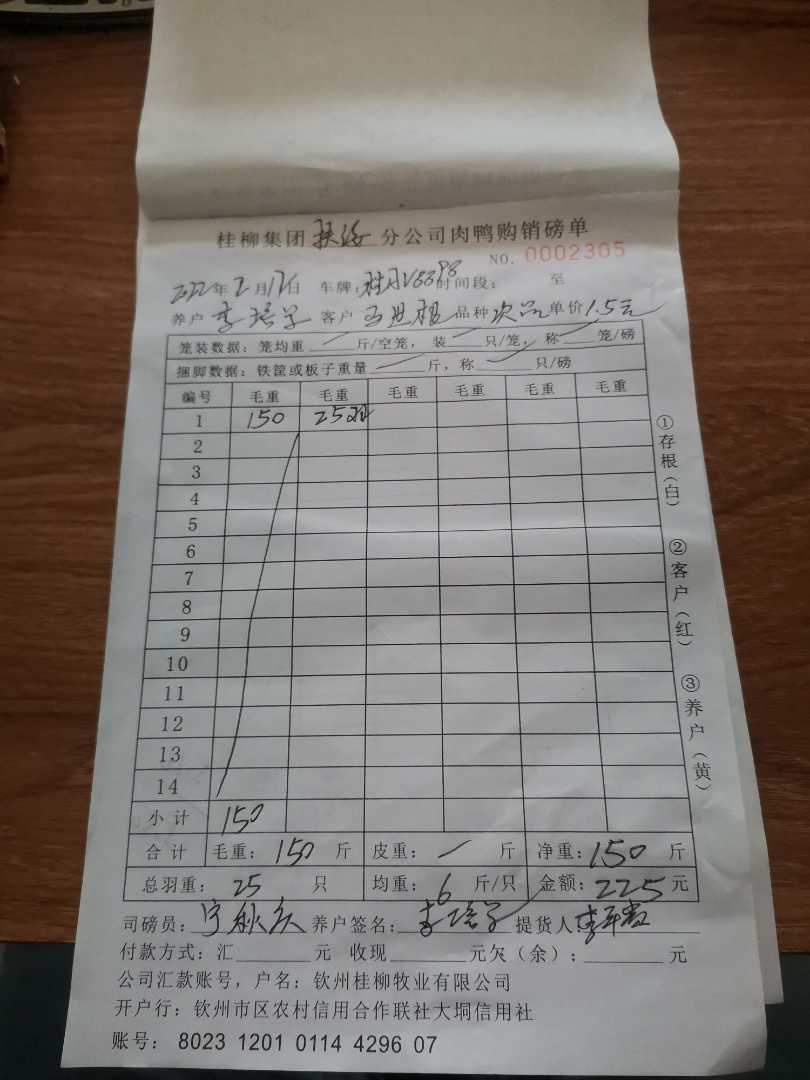 桂柳集团 扶绥 分公司肉鸭购销磅单
NO. 0002305
2022年2月12日 车牌: 时间段: 至
养户 李培学 客户 品种 次品 单价 1.5元
笼装数据: 笼均重 / 斤/空笼, 装 / 只/笼, 称 / 笼/磅
捆脚数据: 铁筐或板子重量 / 斤, 称 / 只/磅
编号 毛重 毛重 毛重 毛重 毛重 毛重
1 150 25羽
2
3
4
5
6
7
8
9
10
11
12
13
14
小计 150
合计 毛重: 150 斤 皮重: / 斤 净重: 150 斤
总羽重: 25 只 均重: 6 斤/只 金额: 225 元
司磅员: 养户签名: 李培学 提货人
付款方式: 汇 元 收现 元欠(余): 元
公司汇款账号, 户名: 钦州桂柳牧业有限公司
开户行: 钦州市区农村信用合作联社大垌信用社
账号: 8023 1201 0114 4296 07
①存根(白)
②客户(红)
③养户(黄)